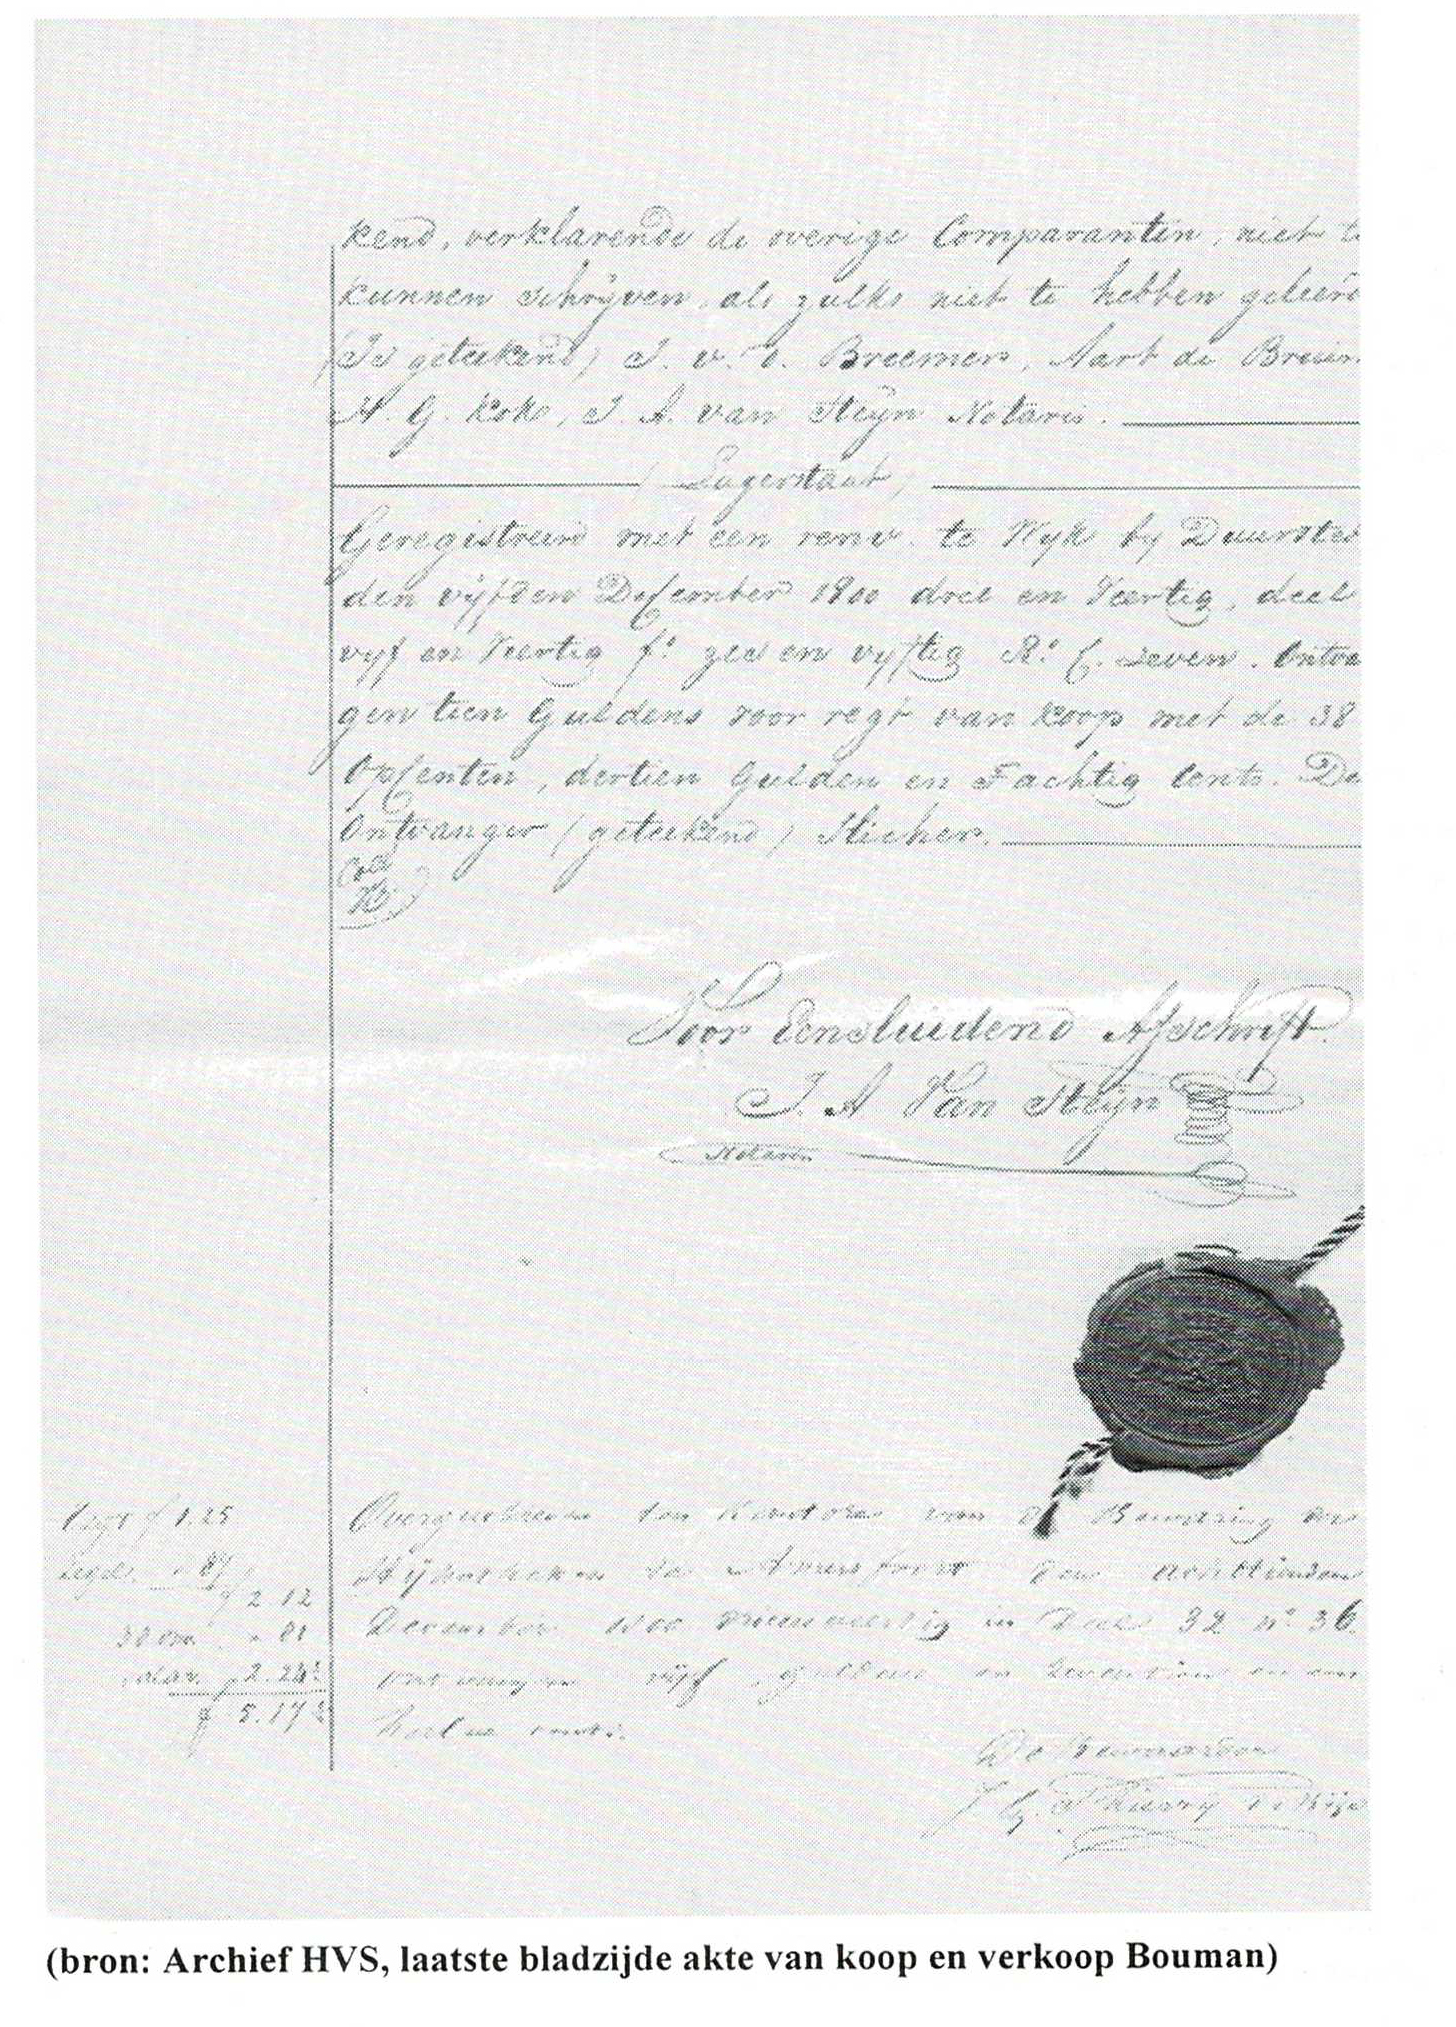 kend, verklarende de overige Comparanten, niet te
kunnen schrijven, als zulks niet te hebben geleerd
(Is geteekend) J. v. d. Breemer, Aart de Bruin
H. G. Kok, J. A. van Steijn Notaris.
Lagerstaat
Geregistreerd met een renv. te Wyk by Duurstede
den vijfden December 1800 drie en Veertig, deel
vyf en Veertig f° zes en vyftig R° C. zeven. Ontva
gen tien Guldens voor regt van koop met de 38
Opcenten, dertien Gulden en Tachtig Cents. De
Ontvanger (geteekend) Sticher.
Coll
Voor Eensluidend Afschrift.
J. A Van Steijn
Notaris
regt f 1.25
zegel " 87
f 2.12
38 " 81
f 2.24½
f 5.17½
Overgeschreven ten Kantore van de Bewaring der
Hijpotheken te Amersfoort den achttienden
December 1800 drieenveertig in Deel 32 n° 36
ontvangen vijf gulden en zeventien en een
halve cents.
De Bewaarder
(bron: Archief HVS, laatste bladzijde akte van koop en verkoop Bouman)